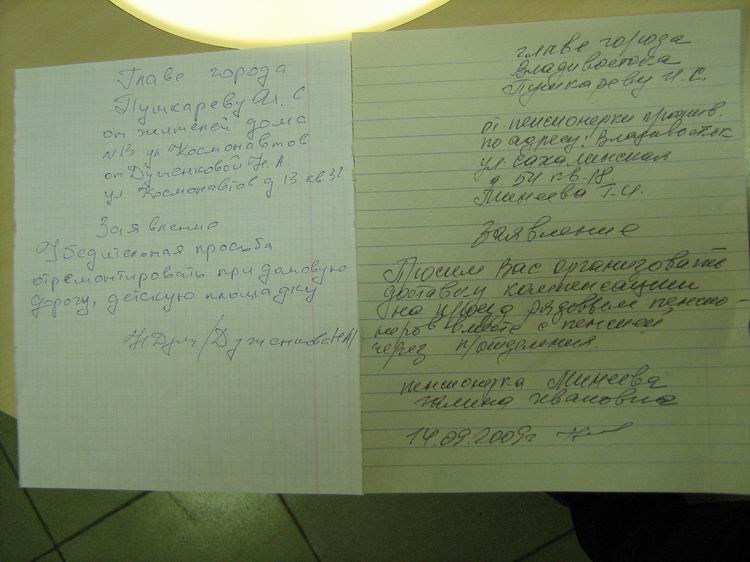 Главе города
Пушкареву И. С
от жителей дома
№13 ул Космонавтов
от Дутченковой Н. А
ул Космонавтов д 13 кв. 32
Заявление
Убедительная просьба
отремонтировать при домовую
дорогу, детскую площадку
/Дутченкова НА/
главе города
Владивостока
Пушкареву И. С.
от пенсионерки прожив.
по адресу: Владивосток
ул. Сахалинская
д. 54 кв. 18
Минеева Г. И.
Заявление
Просим Вас организовать
доставку компенсации
на проезд рядовым пенсио-
неров вместе с пенсией
через п/отделения.
пенсионерка Минеева
галина Ивановна
14.09.2009г